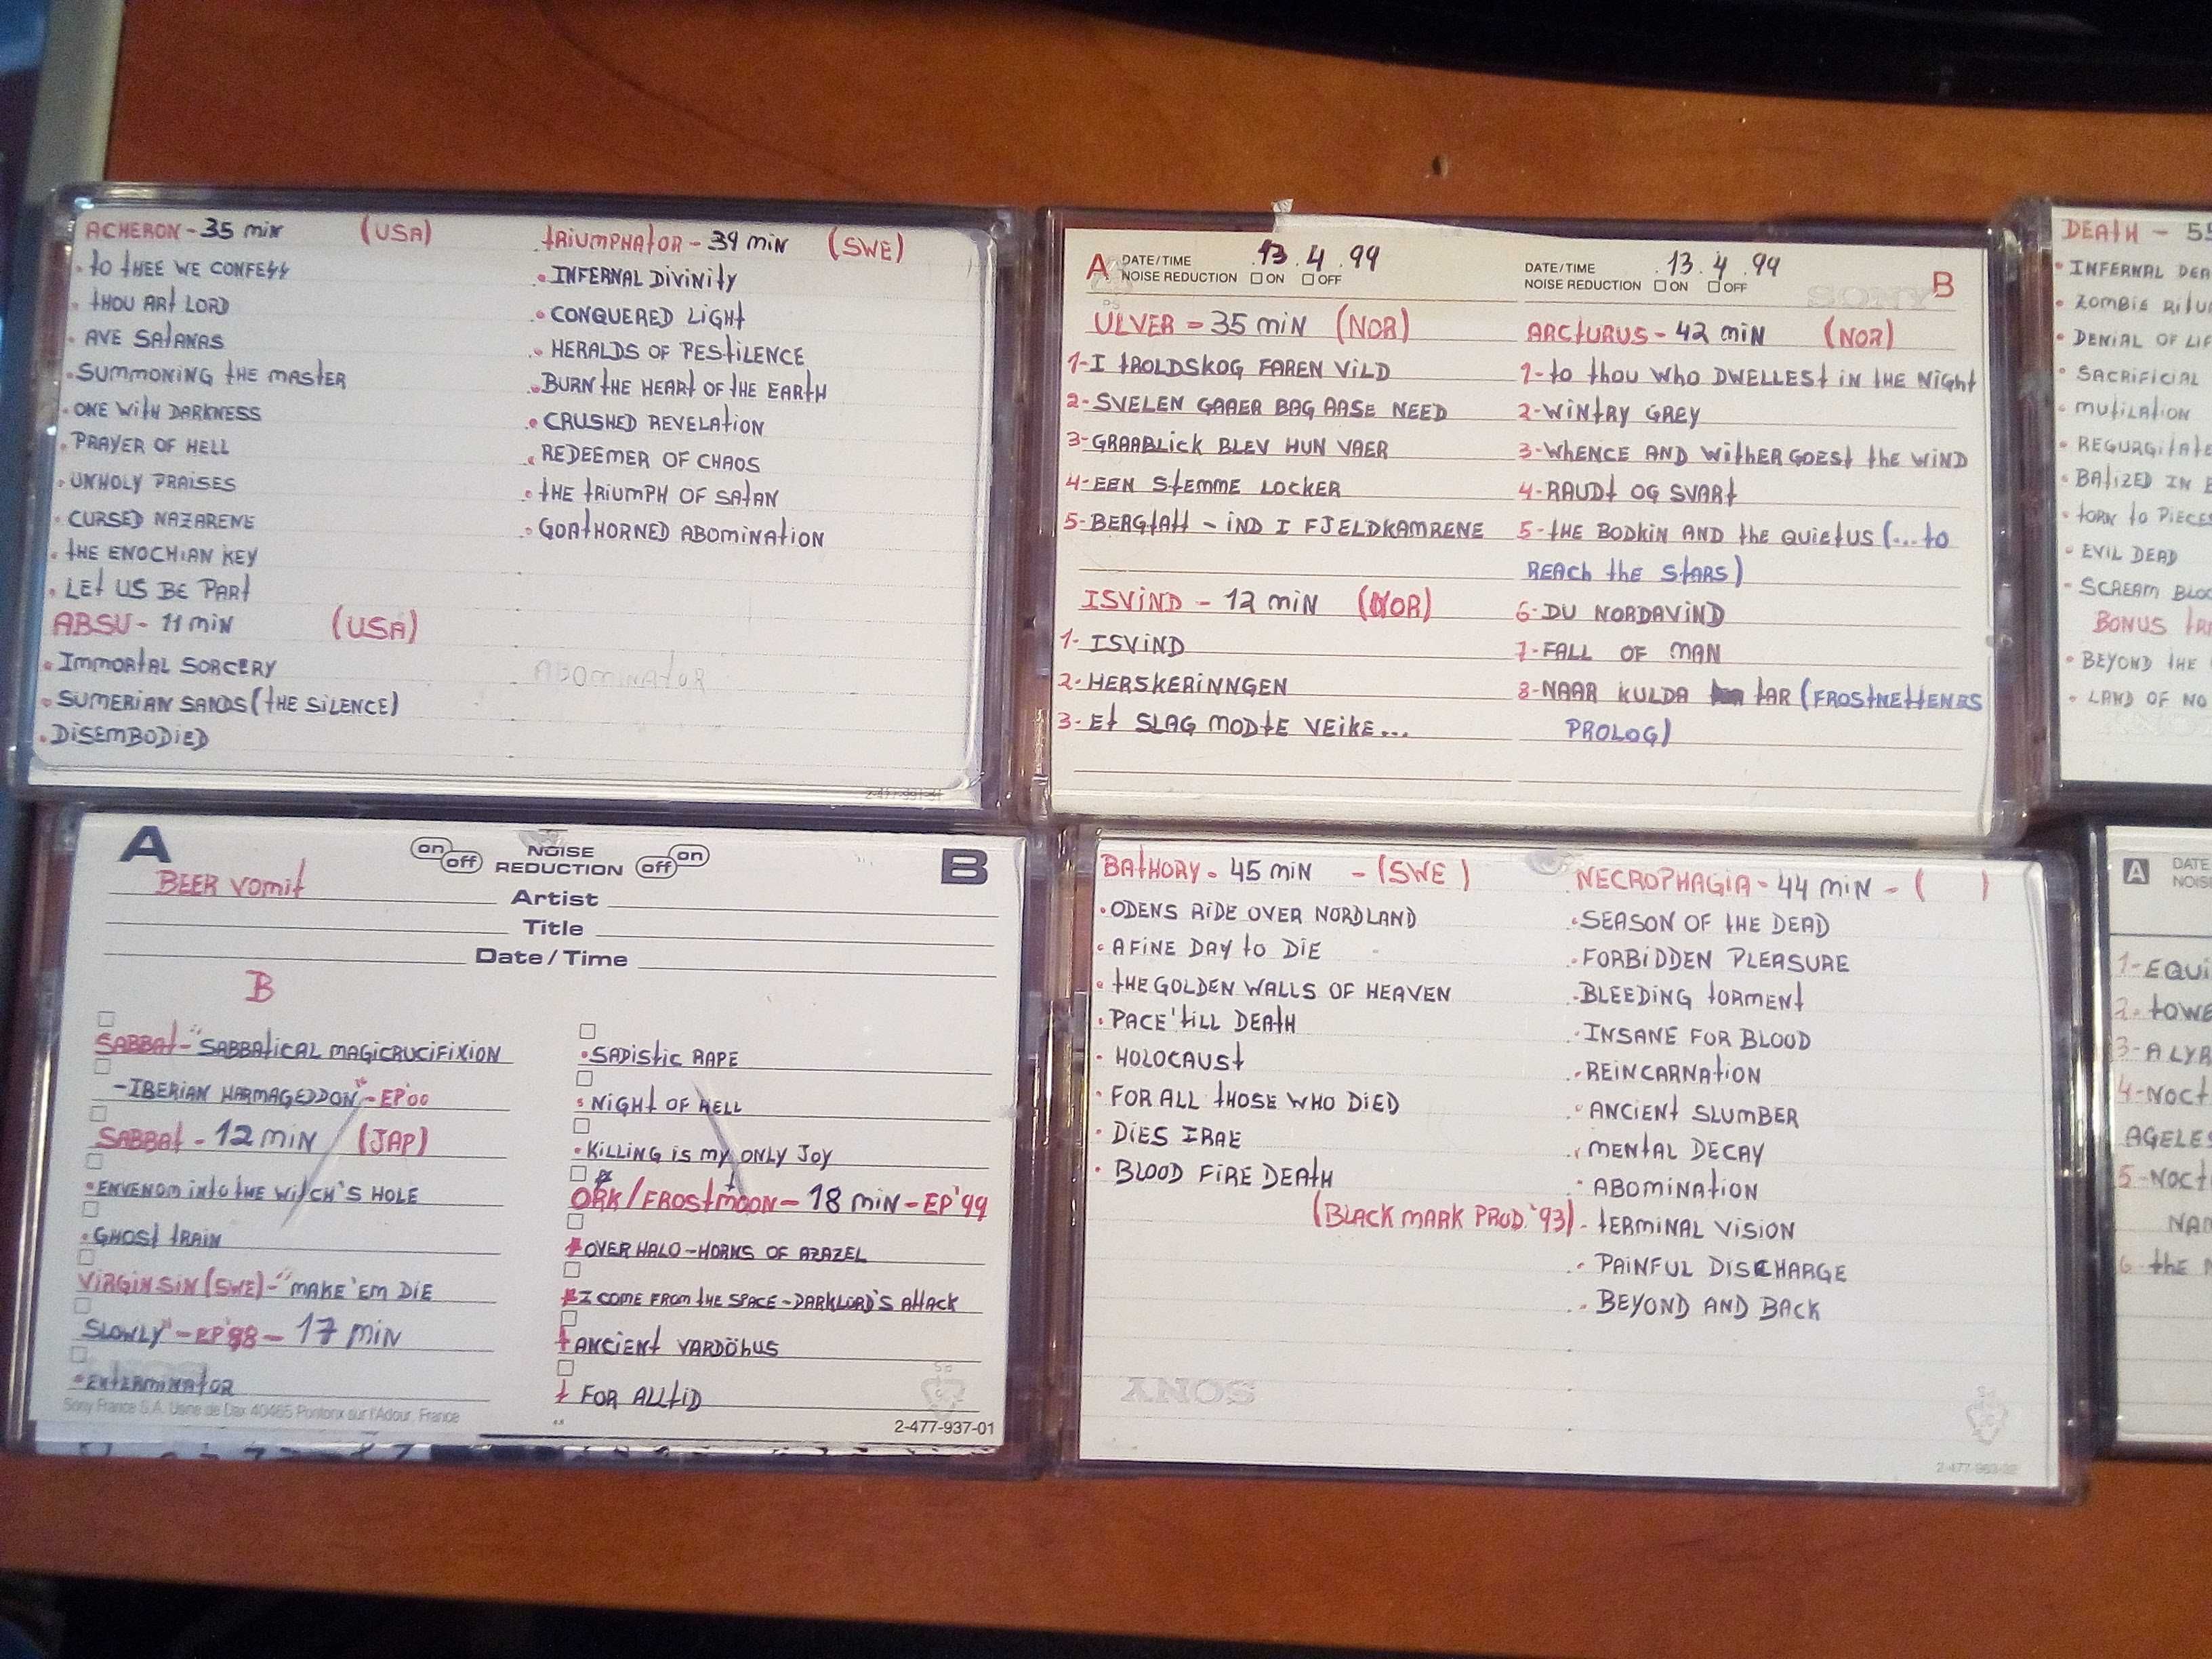 ACHERON - 35 min (USA)
• TO THEE WE CONFESS
• THOU ART LORD
• AVE SATANAS
• SUMMONING THE MASTER
• ONE WITH DARKNESS
• PRAYER OF HELL
• UNHOLY PRAISES
• CURSED NAZARENE
• THE ENOCHIAN KEY
• LET US BE PART
ABSU - 11 min (USA)
• IMMORTAL SORCERY
• SUMERIAN SANDS (THE SILENCE)
• DISEMBODIED
TRIUMPHATOR - 39 min (SWE)
• INFERNAL DIVINITY
• CONQUERED LIGHT
• HERALDS OF PESTILENCE
• BURN THE HEART OF THE EARTH
• CRUSHED REVELATION
• REDEEMER OF CHAOS
• THE TRIUMPH OF SATAN
• GOATHORNED ABOMINATION
ABOMINATOR
A DATE/TIME 13.4.99
NOISE REDUCTION ☐ ON ☐ OFF
ULVER = 35 min (NOR)
1- I TROLDSKOG FAREN VILD
2- SVELEN GAAER BAG AASE NEED
3- GRAABLICK BLEV HUN VAER
4- EEN STEMME LOCKER
5- BERGTATT - IND I FJELDKAMRENE
ISVIND - 12 min (NOR)
1- ISVIND
2- HERSKERINNGEN
3- ET SLAG MODTE VEIKE...
DATE/TIME 13.4.99 B
NOISE REDUCTION ☐ ON ☐ OFF
SONY
ARCTURUS - 42 min (NOR)
1- TO THOU WHO DWELLEST IN THE NIGHT
2- WINTRY GREY
3- WHENCE AND WITHER GOEST THE WIND
4- RAUDT OG SVART
5- THE BODKIN AND THE QUIETUS (...TO
REACH THE STARS)
6- DU NORDAVIND
7- FALL OF MAN
8- NAAR KULDA TAR (FROSTNETTENES
PROLOG)
DEATH - 55
• INFERNAL DEA
• ZOMBIE RITU
• DENIAL OF LIF
• SACRIFICIAL
• MUTILATION
• REGURGITATE
• BATIZED IN B
• TORN TO PIECES
• EVIL DEAD
• SCREAM BLOO
BONUS TR
• BEYOND THE
• LAND OF NO
A on off NOISE REDUCTION off on B
BEER VOMIT
Artist
Title
Date/Time
B
SABBAT - "SABBATICAL MAGICRUCIFIXION
- IBERIAN HARMAGEDDON" - EP'00
SABBAT - 12 min (JAP)
• ENVENOM INTO THE WITCH'S HOLE
• GHOST TRAIN
VIRGIN SIN (SWE) - "MAKE 'EM DIE
SLOWLY" - EP'88 - 17 min
• EXTERMINATOR
Sony France S.A. Usine de Dax 40465 Pontonx sur l'Adour, France
• SADISTIC RAPE
• NIGHT OF HELL
• KILLING IS MY ONLY JOY
ORK/FROSTMOON - 18 min - EP'99
OVER HALO - HORNS OF AZAZEL
I COME FROM THE SPACE - DARKLORD'S ATTACK
ANCIENT VARDÖHUS
FOR ALLTID
2-477-937-01
BATHORY - 45 min - (SWE)
• ODENS RIDE OVER NORDLAND
• A FINE DAY TO DIE
• THE GOLDEN WALLS OF HEAVEN
• PACE 'TILL DEATH
• HOLOCAUST
• FOR ALL THOSE WHO DIED
• DIES IRAE
• BLOOD FIRE DEATH
(BLACK MARK PROD. '93)
SONY
NECROPHAGIA - 44 min - ( )
• SEASON OF THE DEAD
• FORBIDDEN PLEASURE
• BLEEDING TORMENT
• INSANE FOR BLOOD
• REINCARNATION
• ANCIENT SLUMBER
• MENTAL DECAY
• ABOMINATION
• TERMINAL VISION
• PAINFUL DISCHARGE
• BEYOND AND BACK
A DATE
NOIS
1- EQUI
2- TOWE
3- A LYR
4- NOCT
AGELES
5- NOCT
NA
6- THE